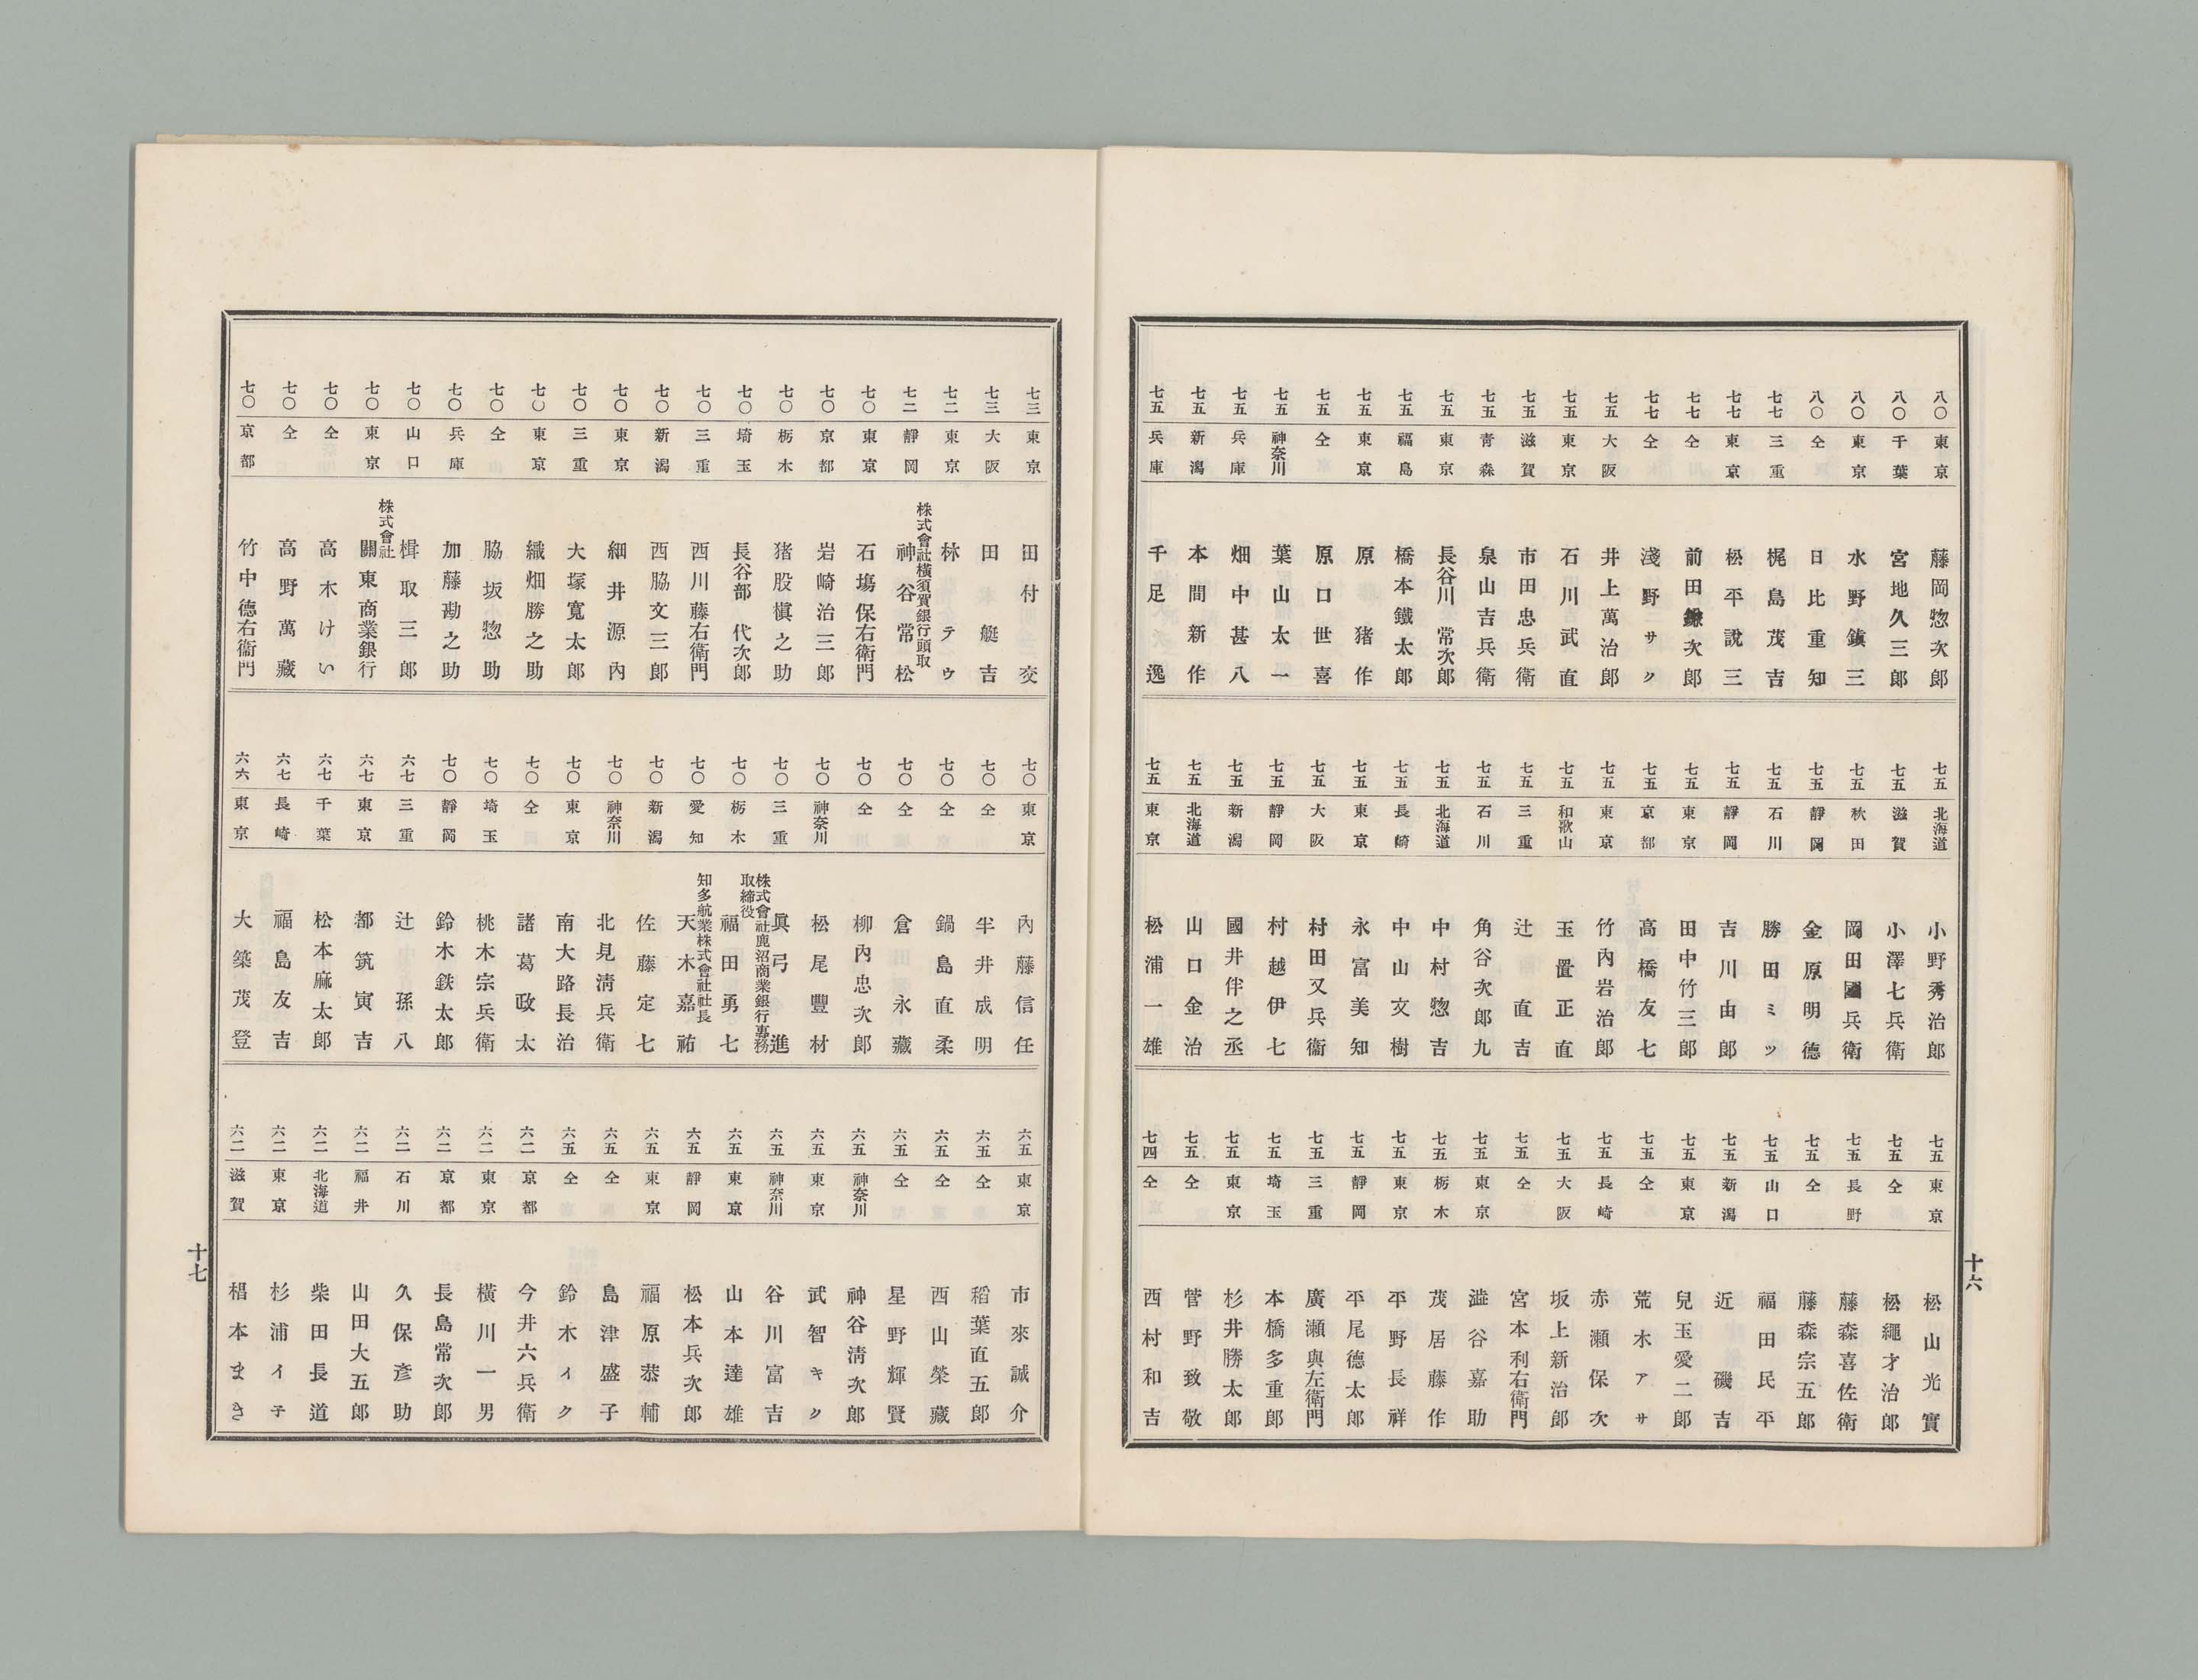 八〇 東京 藤岡惣次郎
八〇 千葉 宮地久三郎
八〇 東京 水野鎮三
八〇 仝 日比重知
七七 三重 梶島茂吉
七七 東京 松平說三
七七 仝 前田鎌次郎
七七 仝 淺野サク
七五 大阪 井上萬治郎
七五 東京 石川武直
七五 滋賀 市田忠兵衛
七五 青森 泉山吉兵衛
七五 東京 長谷川常次郎
七五 福島 橋本鐵太郎
七五 東京 原猪作
七五 仝 原口世喜
七五 神奈川 葉山太一
七五 兵庫 畑中甚八
七五 新潟 本間新作
七五 兵庫 千足逸
七五 北海道 小野秀治郎
七五 滋賀 小澤七兵衛
七五 秋田 岡田國兵衛
七五 靜岡 金原明德
七五 石川 勝田ミツ
七五 靜岡 吉川由郎
七五 東京 田中竹三郎
七五 京都 高橋友七
七五 東京 竹內岩治郎
七五 和歌山 玉置正直
七五 三重 辻直吉
七五 石川 角谷次郎九
七五 北海道 中村惣吉
七五 長崎 中山文樹
七五 東京 永富美知
七五 大阪 村田又兵衛
七五 靜岡 村越伊七
七五 新潟 國井伴之丞
七五 北海道 山口金治
七五 東京 松浦一雄
七五 東京 松山光實
七五 仝 松繩才治郎
七五 長野 藤森喜佐衛
七五 仝 藤森宗五郎
七五 山口 福田民平
七五 新潟 近磯吉
七五 東京 兒玉愛二郎
七五 仝 荒木アサ
七五 長崎 赤瀬保次
七五 大阪 坂上新治郎
七五 仝 宮本利右衛門
七五 東京 澁谷嘉助
七五 栃木 茂居藤作
七五 東京 平野長祥
七五 靜岡 平尾德太郎
七五 三重 廣瀬與左衛門
七五 埼玉 本橋多重郎
七五 東京 杉井勝太郎
七五 仝 菅野致敬
七四 仝 西村和吉
十六
七三 東京 田付交
七三 大阪 田艇吉
七二 東京 林テウ
七二 靜岡 株式會社橫須賀銀行頭取 神谷常松
七〇 東京 石塲保右衛門
七〇 京都 岩崎治三郎
七〇 栃木 猪股槇之助
七〇 埼玉 長谷部代次郎
七〇 三重 西川藤右衛門
七〇 新潟 西脇文三郎
七〇 東京 細井源內
七〇 三重 大塚寬太郎
七〇 東京 織畑勝之助
七〇 仝 脇坂惣助
七〇 兵庫 加藤勘之助
七〇 山口 楫取三郎
七〇 東京 株式會社 關東商業銀行
七〇 仝 高木けい
七〇 仝 高野萬藏
七〇 京都 竹中德右衞門
七〇 東京 內藤信任
七〇 仝 半井成明
七〇 仝 鍋島直柔
七〇 仝 倉永藏
七〇 仝 柳內忠次郎
七〇 神奈川 松尾豐材
七〇 三重 眞弓進
七〇 栃木 株式會社鹿沼商業銀行專務取締役 福田勇七
七〇 愛知 知多航業株式会社社長 天木嘉祐
七〇 新潟 佐藤定七
七〇 神奈川 北見淸兵衛
七〇 東京 南大路長治
七〇 仝 諸葛政太
七〇 埼玉 桃木宗兵衛
七〇 靜岡 鈴木鉄太郎
六七 三重 辻孫八
六七 東京 都筑寅吉
六七 千葉 松本麻太郎
六七 長崎 福島友吉
六六 東京 大築茂登
六五 東京 市來誠介
六五 仝 稻葉直五郎
六五 仝 西山榮藏
六五 仝 星野輝賢
六五 神奈川 神谷淸次郎
六五 東京 武智キク
六五 神奈川 谷川富吉
六五 東京 山本達雄
六五 靜岡 松本兵次郎
六五 東京 福原恭輔
六五 仝 島津盛子
六五 仝 鈴木イク
六二 京都 今井六兵衛
六二 東京 橫川一男
六二 京都 長島常次郎
六二 石川 久保彥助
六二 福井 山田大五郎
六二 北海道 柴田長道
六二 東京 杉浦イチ
六二 滋賀 椙本まさ
十七